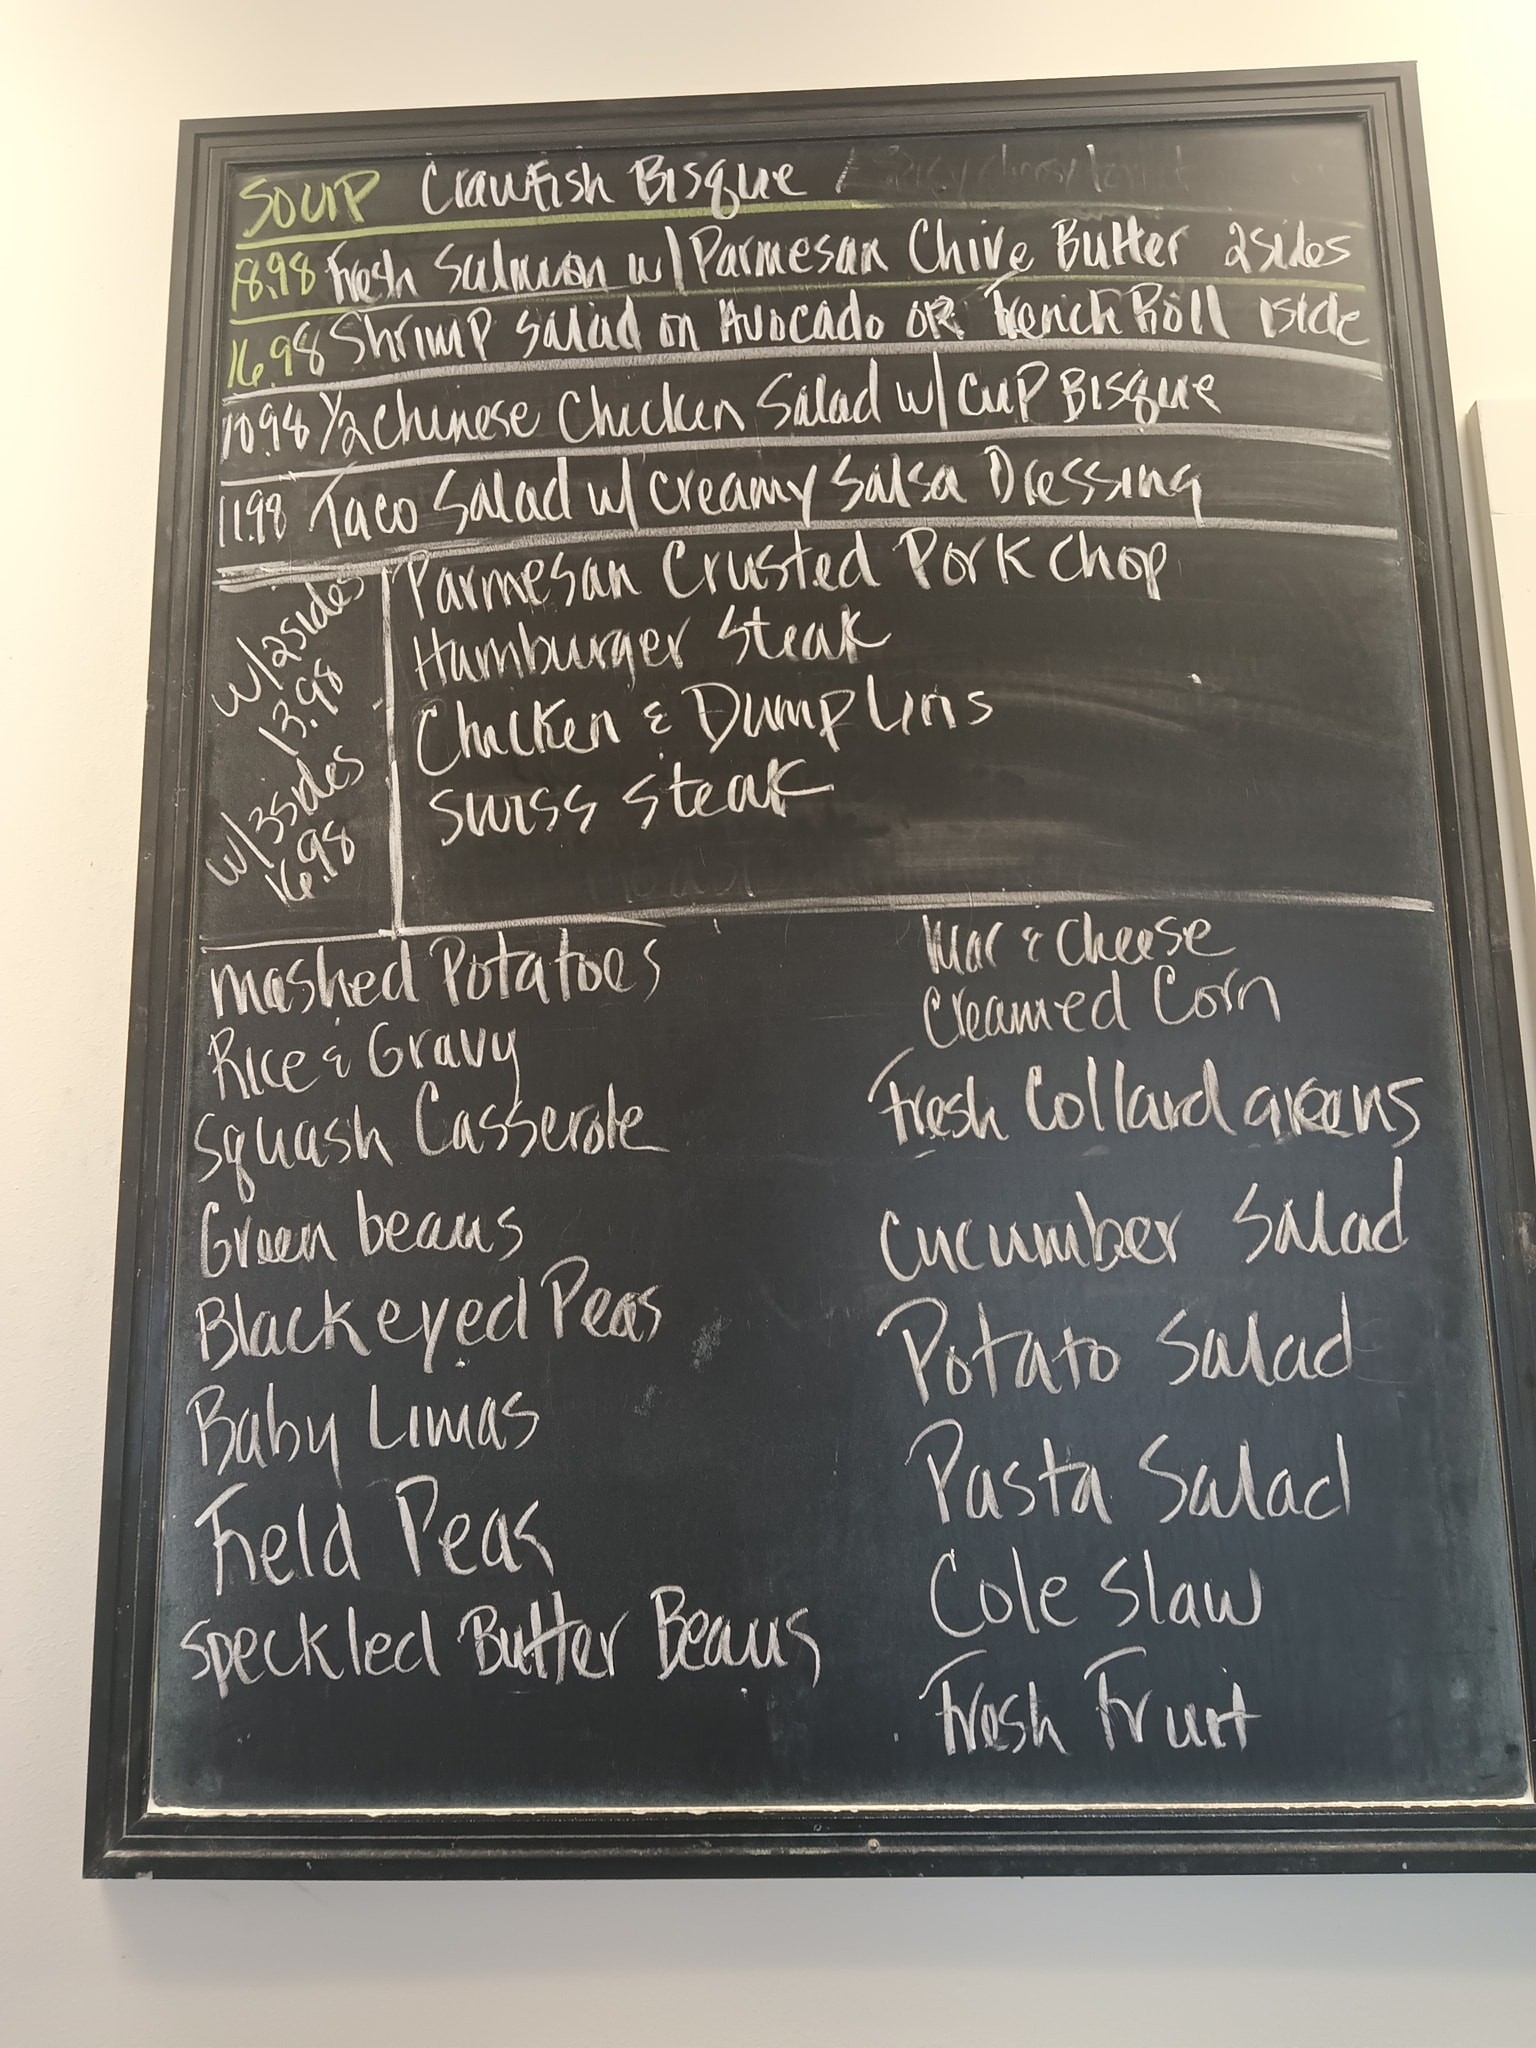 SOUP Crawfish Bisque
18.98 Fresh Salmon w/ Parmesan Chive Butter 2 sides
16.98 Shrimp Salad on Avocado or French Roll 1 side
10.98 1/2 Chinese Chicken Salad w/ Cup Bisque
11.98 Taco Salad w/ Creamy Salsa Dressing
w/ 2 sides
13.98
w/ 3 sides
16.98
Parmesan Crusted Pork Chop
Hamburger Steak
Chicken & Dumplins
Swiss Steak
Mashed Potatoes
Rice & Gravy
Squash Casserole
Green beans
Blackeyed Peas
Baby Limas
Field Peas
Speckled Butter Beans
Mac & Cheese
Creamed Corn
Fresh Collard Greens
Cucumber Salad
Potato Salad
Pasta Salad
Cole Slaw
Fresh Fruit